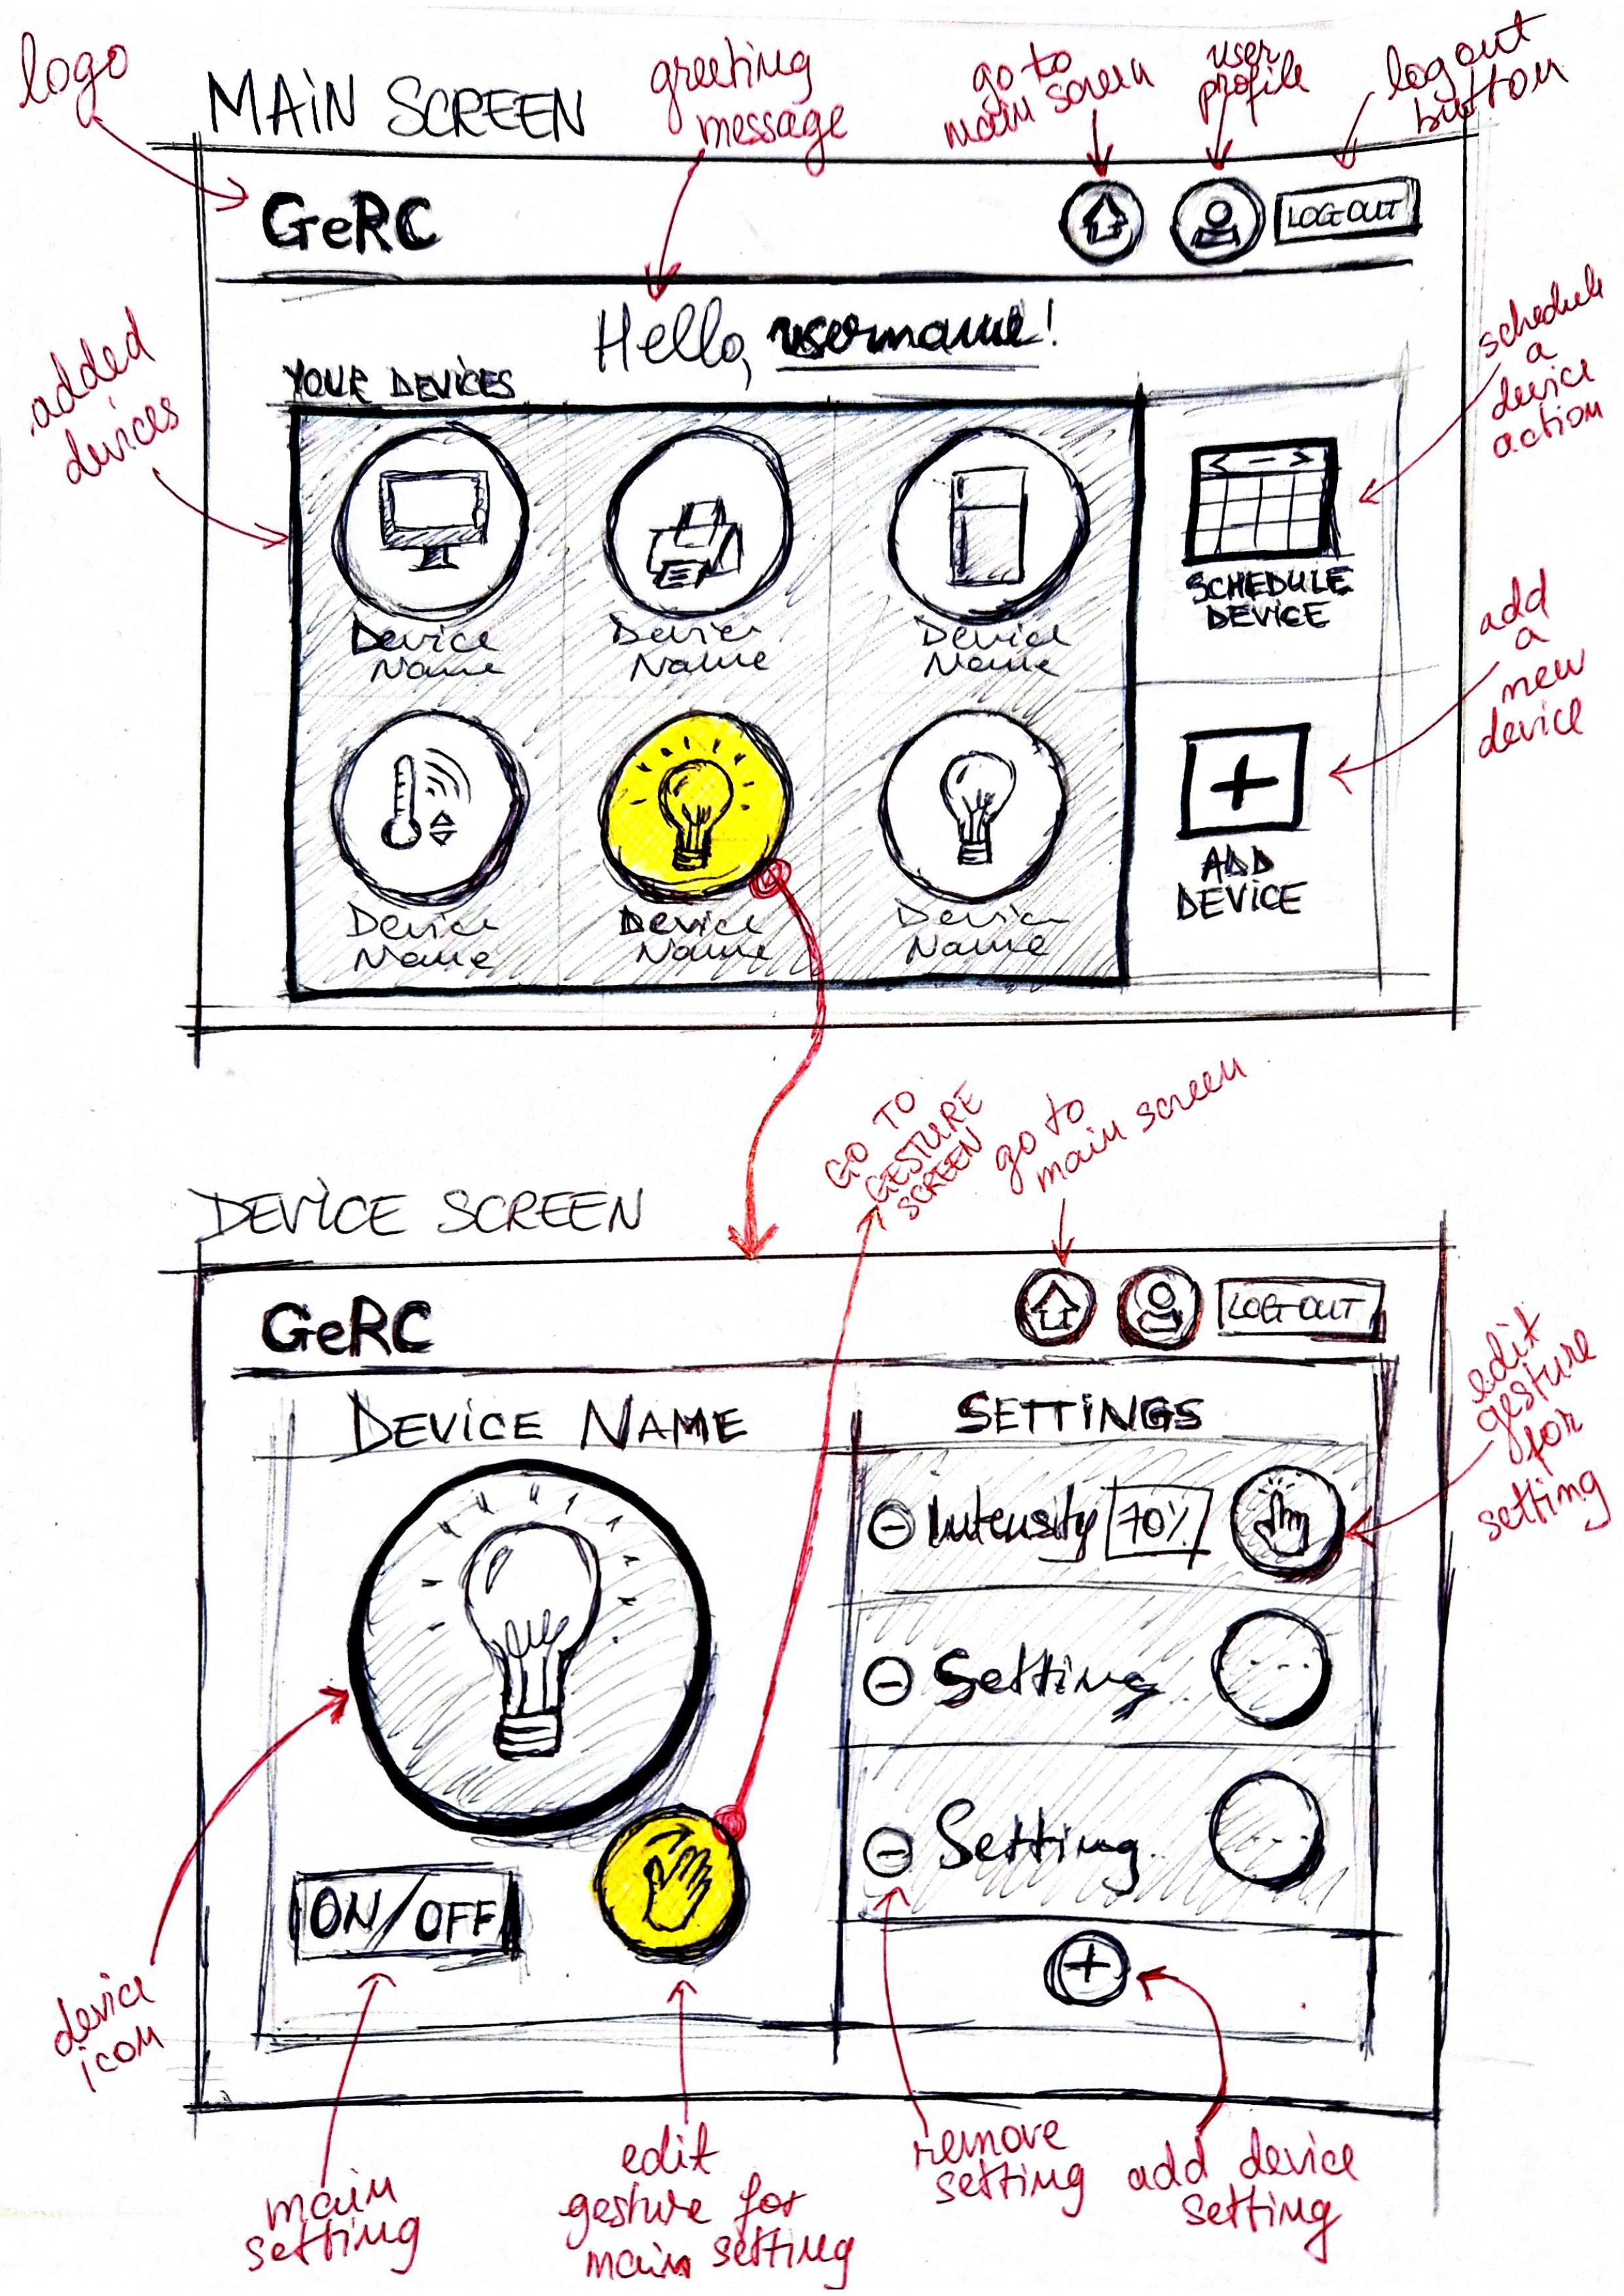 logo
MAIN SCREEN
greeting
message
go to
main screen
user
profile
logout
button
GeRC
LOGOUT
Hello, username!
YOUR DEVICES
added
devices
schedule
a
device
action
Device
Name
Device
Name
Device
Name
SCHEDULE
DEVICE
add
a
new
device
Device
Name
Device
Name
Device
Name
ADD
DEVICE
GO TO
GESTURE
SCREEN
go to
main screen
DEVICE SCREEN
GeRC
LOGOUT
DEVICE NAME
SETTINGS
edit
gesture
for
setting
Intensity 70%
Setting
Setting
ON/OFF
device
icon
main
setting
edit
gesture for
main setting
remove
setting
add device
setting